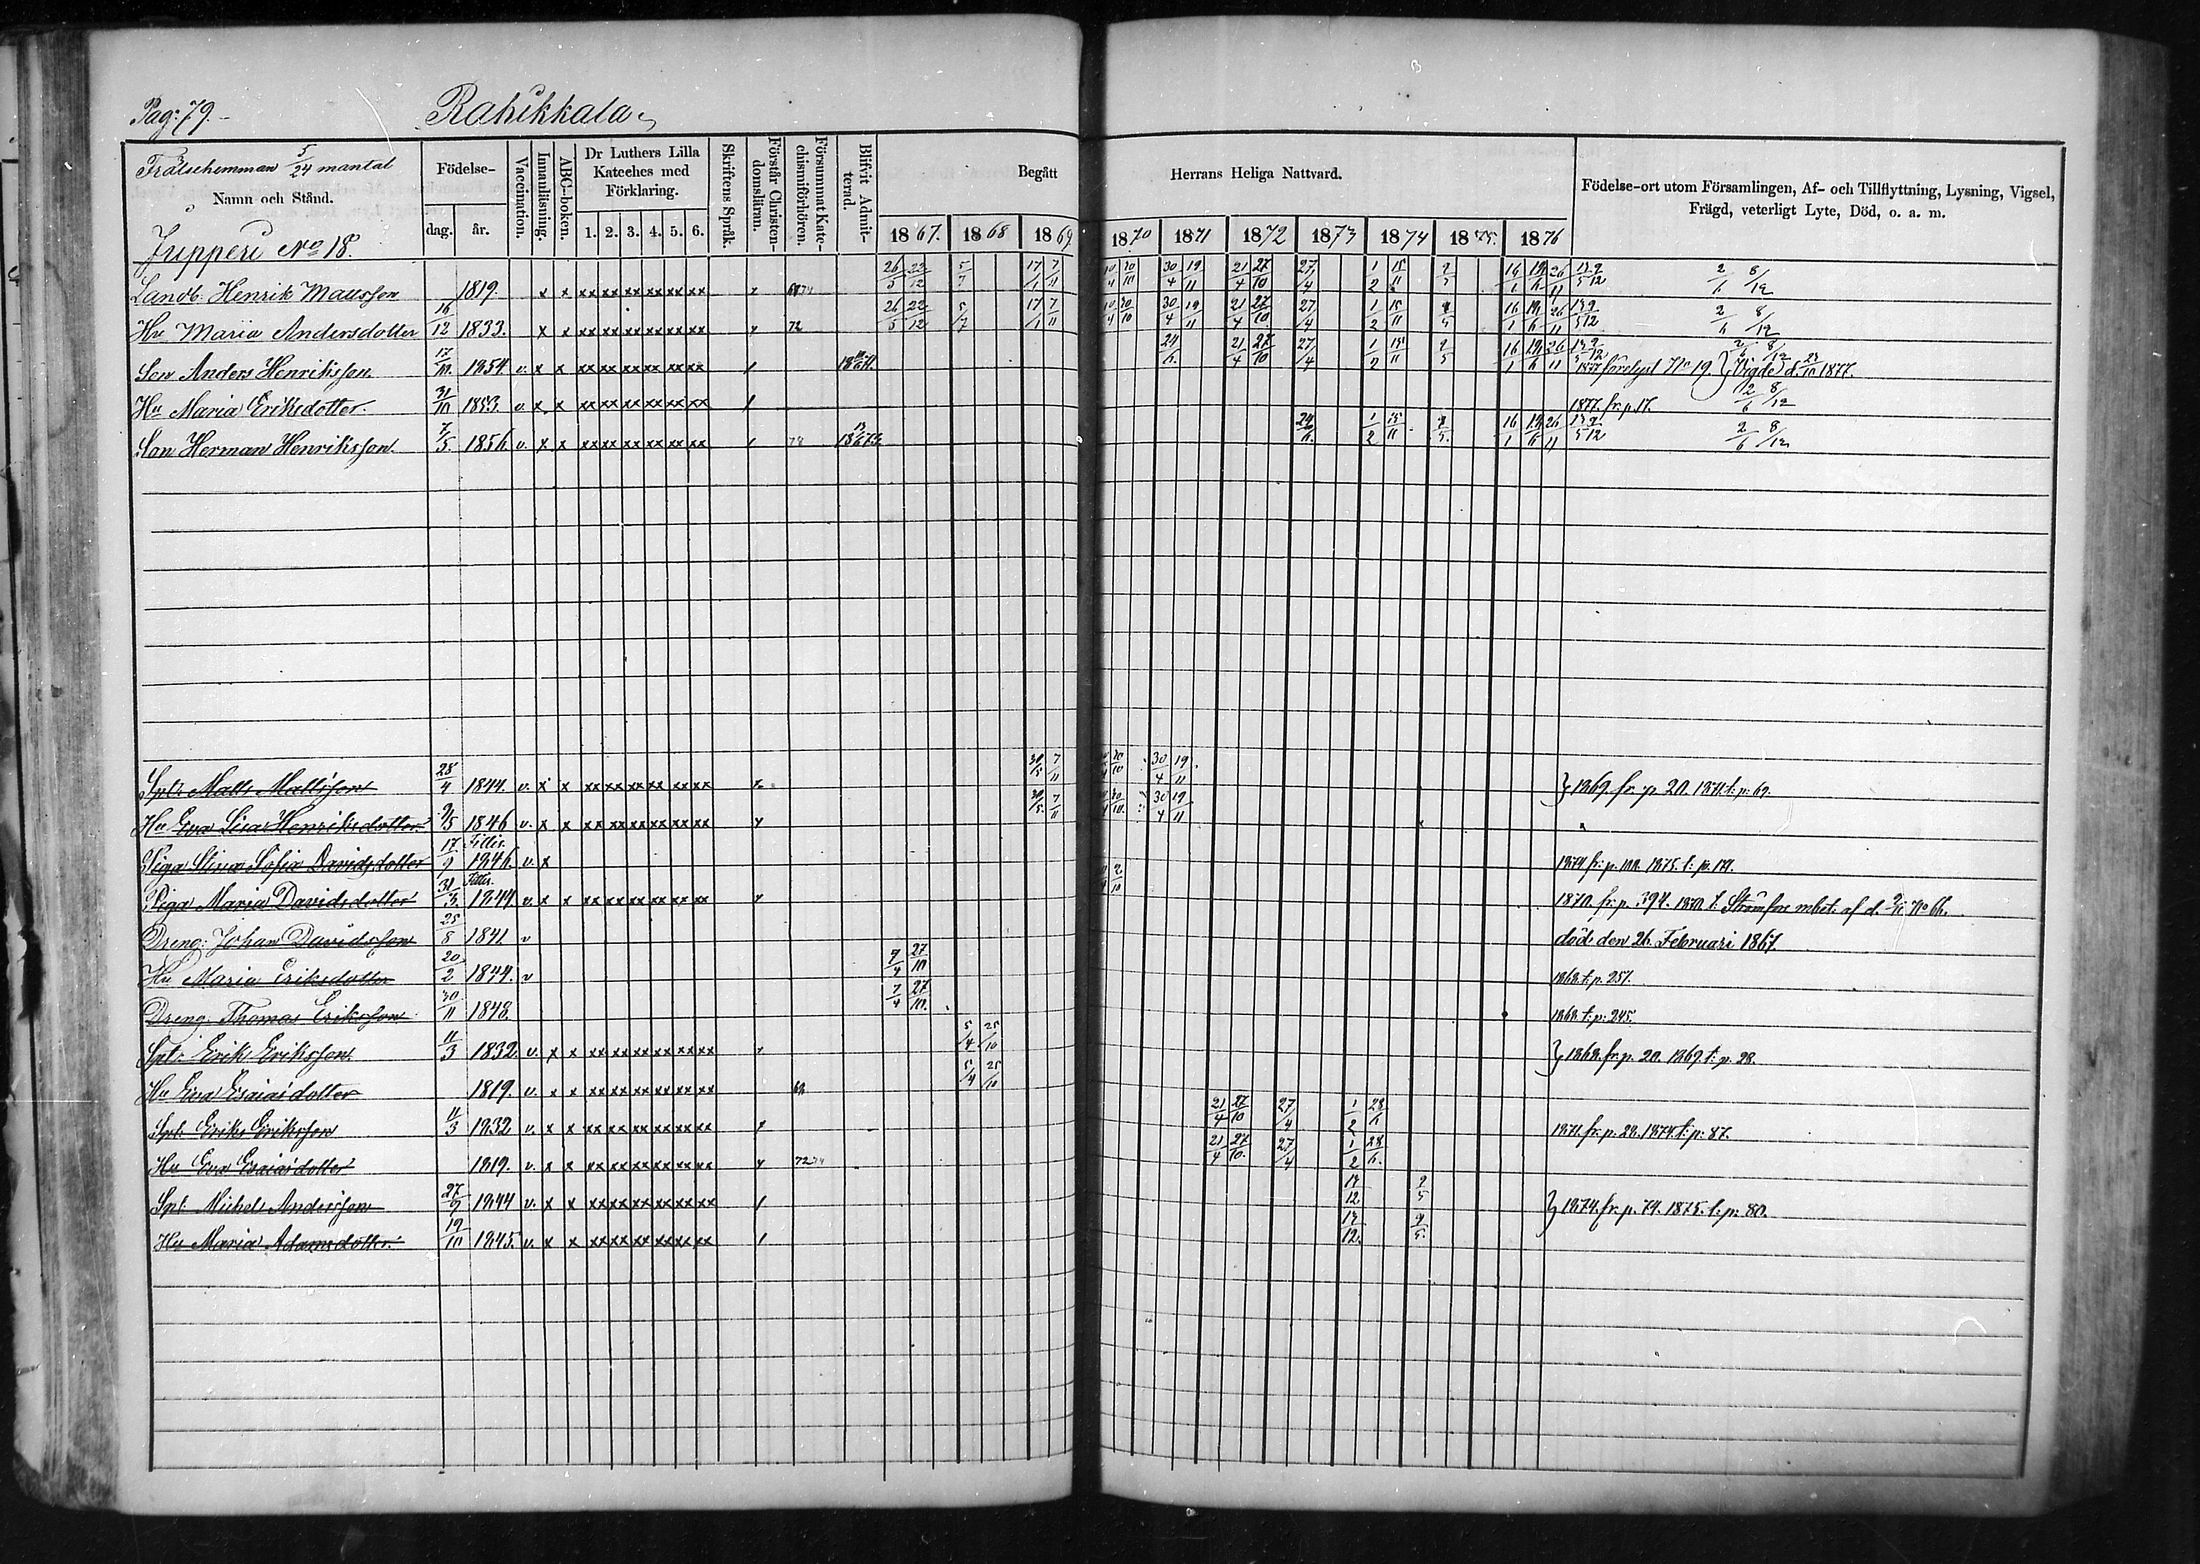 Pag: 79.
Rahikkala
Frälsehemman 5/24 mantal
Namn och Stånd.
Jupperi No 18.
Födelse-
dag. år.
Vaccination.
Innanläsning.
ABC-boken.
Dr Luthers Lilla Kateches med Förklaring.
1. 2. 3. 4. 5. 6.
Skriftens Språk.
Förstår Christendomsläran.
Försummat Katechismiförhören.
Blifvit Admitterad.
Begått Herrans Heliga Nattvard.
1867. 1868 1869 1870 1871 1872 1873 1874 1875. 1876
Födelse-ort utom Församlingen, Af- och Tillflyttning, Lysning, Vigsel,
Frägd, veterligt Lyte, Död, o. a. m.
Landb. Henrik Matsson 1819. x x xx xx xx xx xx xx 26/5 22/12 5/7 17/1 7/11 30/4 19/11 21/4 27/10 27/4 1/2 15/11 16/1 19/6 26/11 2/6 8/12
Hu Maria Andersdotter 16/12 1833. x x xx xx xx xx xx xx 72 26/5 22/12 5/7 17/1 7/11 30/4 19/11 21/4 27/10 27/4 1/2 15/11 16/1 19/6 26/11 2/6 8/12
Son Anders Henriksson 1854 v. x x xx xx xx xx xx xx 21/4 27/10 27/4 1/2 15/11 16/1 19/6 26/11 2/6 8/12 1877 förelyst No 19. } Vigde d. 23/10 1877.
Hu Maria Eriksdotter. 31/10 1853. v. x x xx xx xx xx xx xx 1877. fr. p. 17. 2/6 8/12
Son Herman Henriksson. 7/5 1856 v. x x xx xx xx xx xx xx 1/2 15/11 16/1 19/6 26/11 2/6 8/12
Spl: Matts Mattsson 28/4 1844. v. x x xx xx xx xx xx xx 30/5 7/11 30/4 19/11 } 1869. fr. p. 20. 1871. t. p. 69.
Hu Eva Lisa Henriksdotter 1846 v. x x xx xx xx xx xx xx 30/5 7/11 30/4 19/11
Piga Stina Sofia Davidsdotter 17/9 1846 v. x
Piga Maria Davidsdotter 31/3 1844 v. x x xx xx xx xx xx xx 1870. fr. p. 394. 1870. t. Strömfors
Dreng: Johan Davidsson 25/8 1841 v död den 26 Februari 1867
Hu Maria Eriksdotter 20/2 1844. v 27/10 1868. t. p. 257.
Dreng: Thomas Eriksson 30/11 1848. 27/10 1868. t. p. 245.
Spl: Erik Eriksson 11/3 1832. v. x x xx xx xx xx xx xx 5/4 25/10 } 1868. fr. p. 20. 1869. t. p. 28.
Hu Eva Esaiasdotter 1819. v. x x xx xx xx xx xx xx 5/4 25/10
Spl. Erik Eriksson 11/3 1832 v. x x xx xx xx xx xx xx 21/4 27/10 27/4 1/2 28/6 1871. fr. p. 28. 1874. t. p. 87.
Hu Eva Esaiasdotter 1819. v. x x xx xx xx xx xx xx 72 74 21/4 27/10 27/4 1/2 28/6
Spl. Michel Andersson 27/9 1844 v. x x xx xx xx xx xx xx } 1874. fr. p. 74. 1875. t. p. 80.
Hu Maria Adamsdotter. 19/10 1845. v. x x xx xx xx xx xx xx